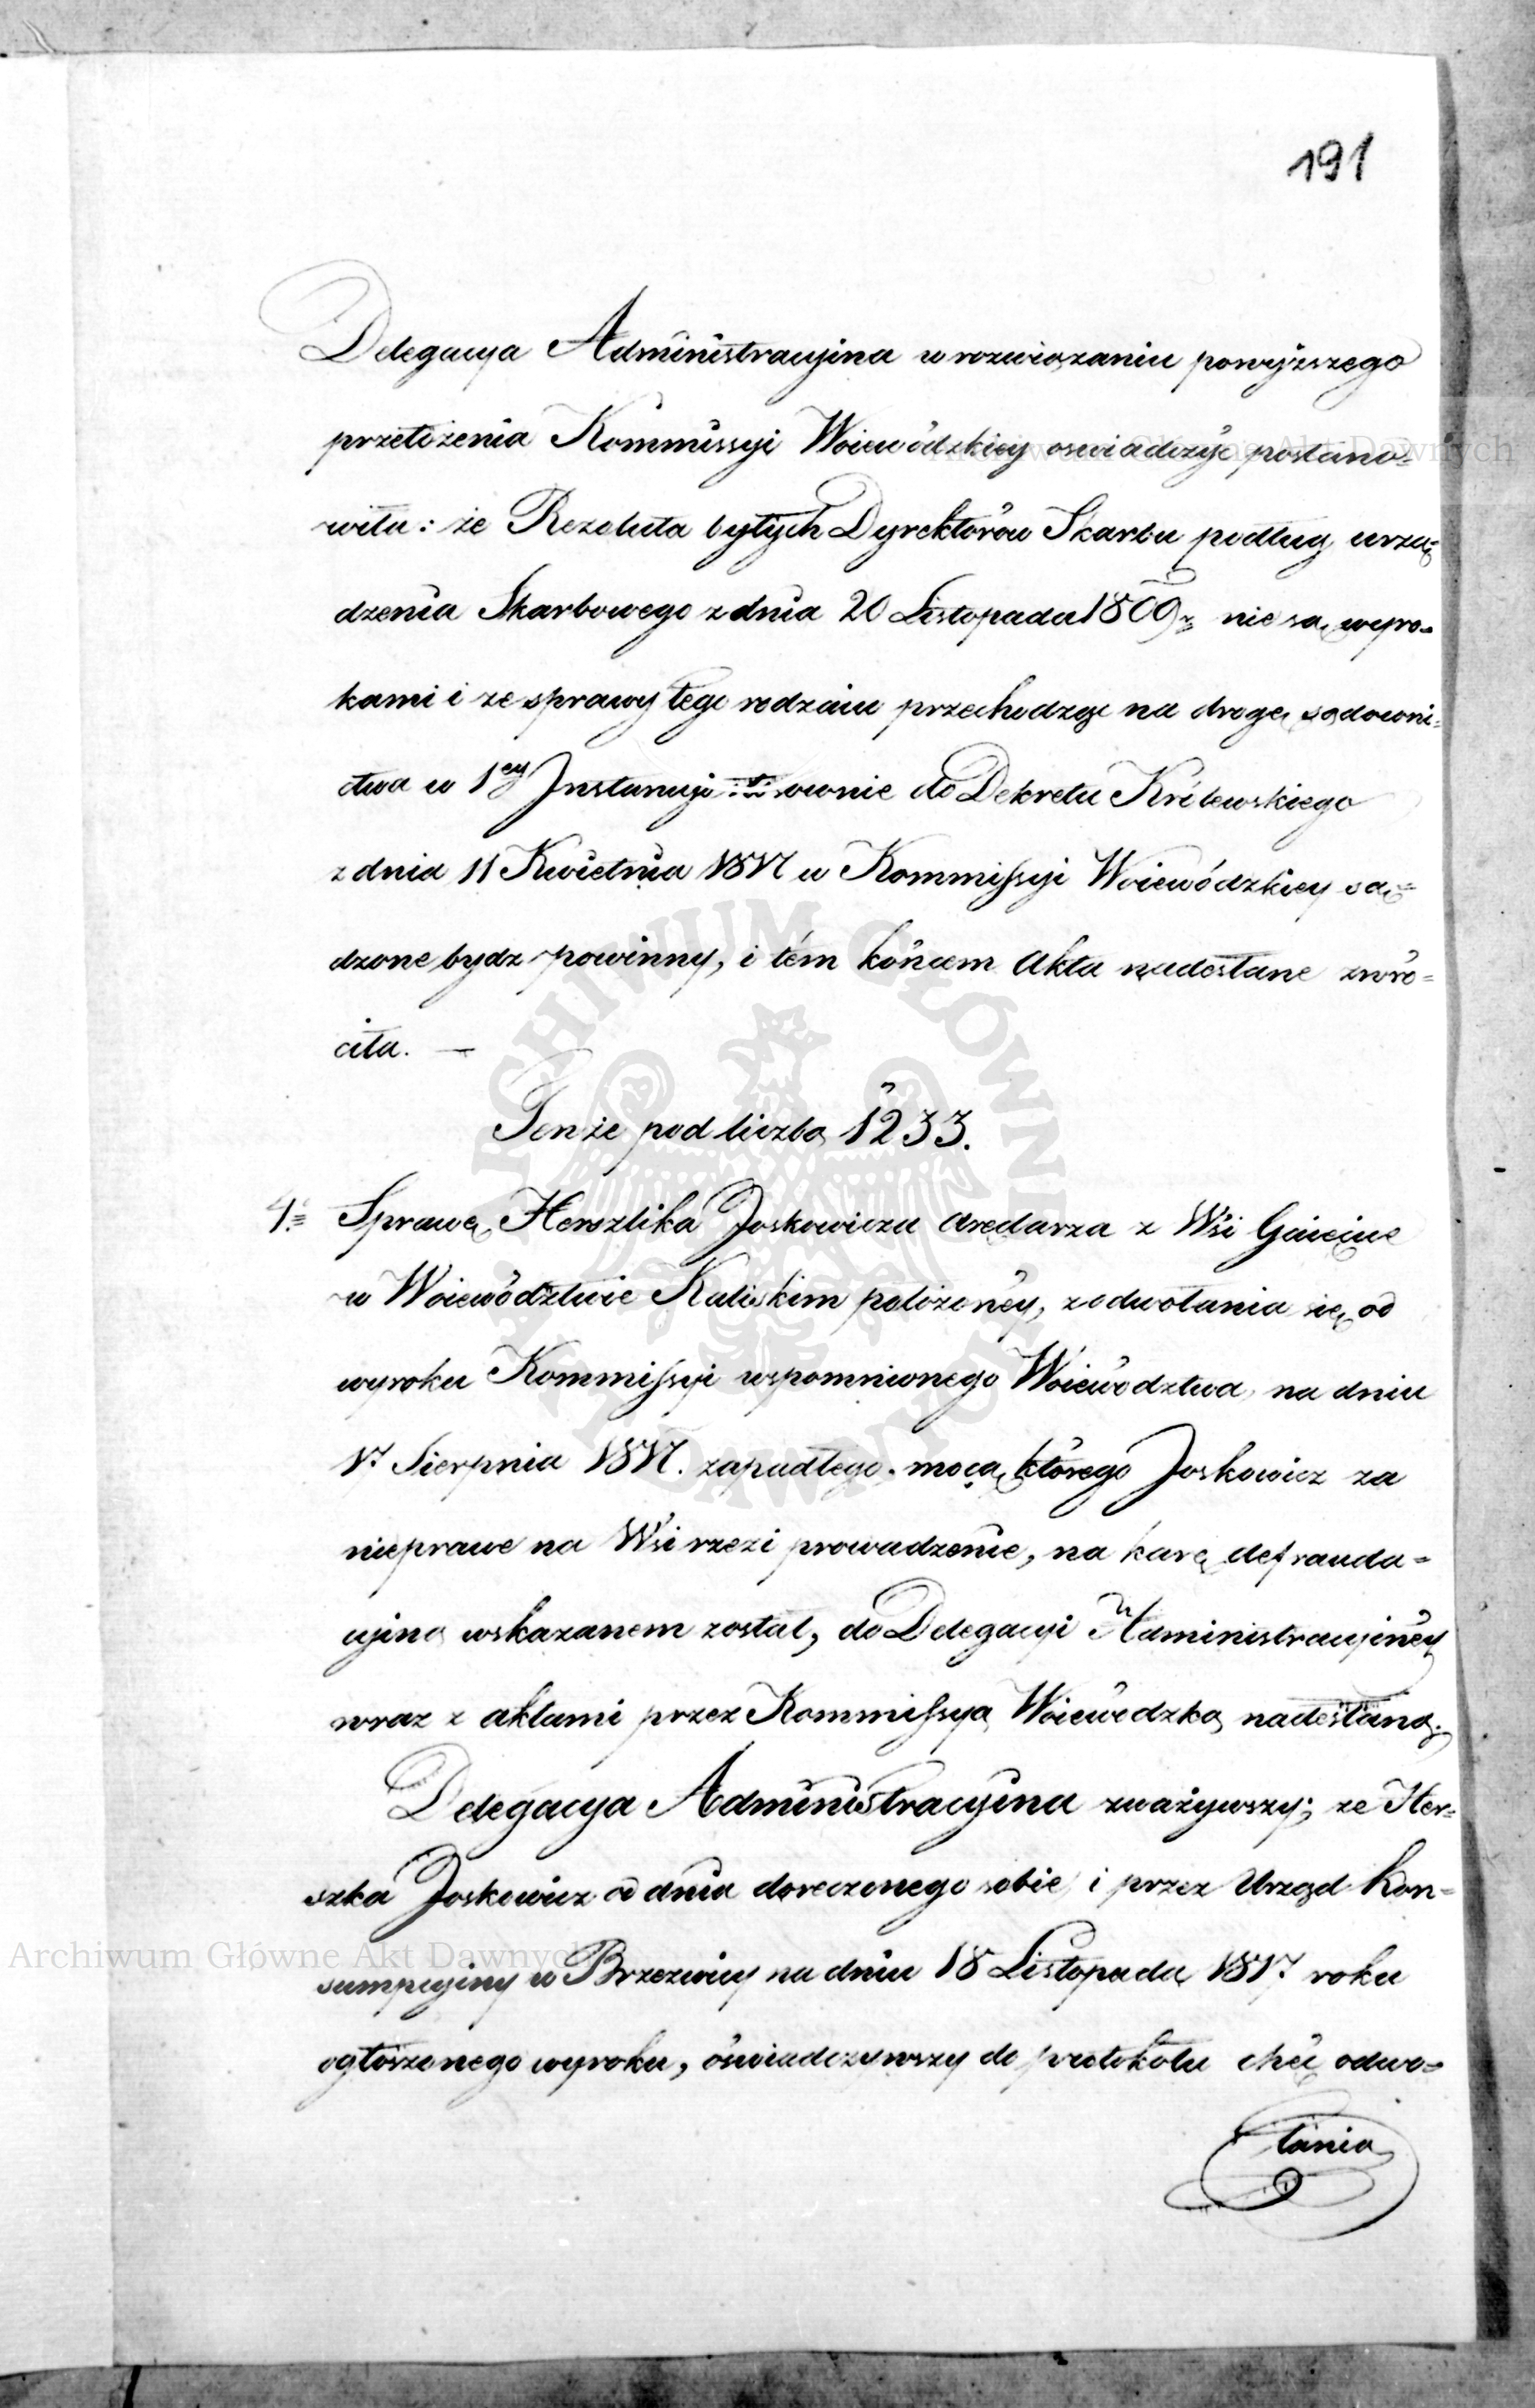 191
Delegacya Administracyina w rozwiązaniu powyższego
przełożenia Kommissyi Woiewódzkiey oświadczyć postano=
wiła: że Rezoluta byłych Dyrektorów Skarbu podług urzą=
dzenia Skarbowego z dnia 20 Listopada 1809 r. nie są wyro=
kami i że sprawy tego rodzaiu przechodząc na drogę sądowni=
ctwa w 1ey Instancyi stosownie do Dekretu Królewskiego
z dnia 11 Kwietnia 1817 w Kommissyi Woiewódzkiey są=
dzone bydz powinny, i tém końcem Akta nadesłane zwró=
ciła. —
Tenże pod liczbą 1233.
4. Sprawę Herszlika Joskowicza Aredarza z Wsi
w Woiewództwie Kaliskim położoney, z odwołania się od
wyroku Kommissyi wspomnionego Woiewództwa na dniu
17 Sierpnia 1817. zapadłego, mocą którego Joskowicz za
nieprawe na Wsi rzezi prowadzenie, na karę defrauda=
cyiną wskazanem został, do Delegacyi Administracyiney
wraz z aktami przez Kommissyą Woiewodzką nadesłaną.
Delegacya Administracyina zważywszy; że Her=
szka Joskowicz od dnia doręczonego sobie i przez Urząd Kon=
sumpcyiny w Brzeziny na dniu 18 Listopada 1817 roku
ogłoszonego wyroku, oświadczywszy do protokołu chęć odwo=
łania
Archiwum Główne Akt Dawnych
Archiwum Główne Akt Dawnych
ARCHIWUM GŁÓWNE AKT DAWNYCH